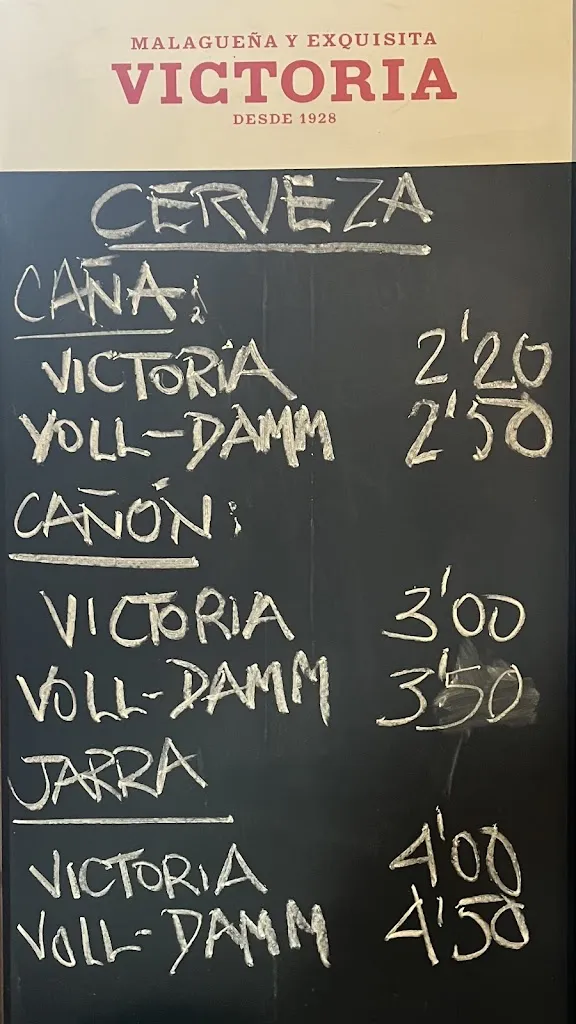 MALAGUEÑA Y EXQUISITA
VICTORIA
DESDE 1928
CERVEZA
CAÑA:
VICTORIA 2'20
VOLL-DAMM 2'50
CAÑÓN:
VICTORIA 3'00
VOLL-DAMM 3'50
JARRA
VICTORIA 4'00
VOLL-DAMM 4'50